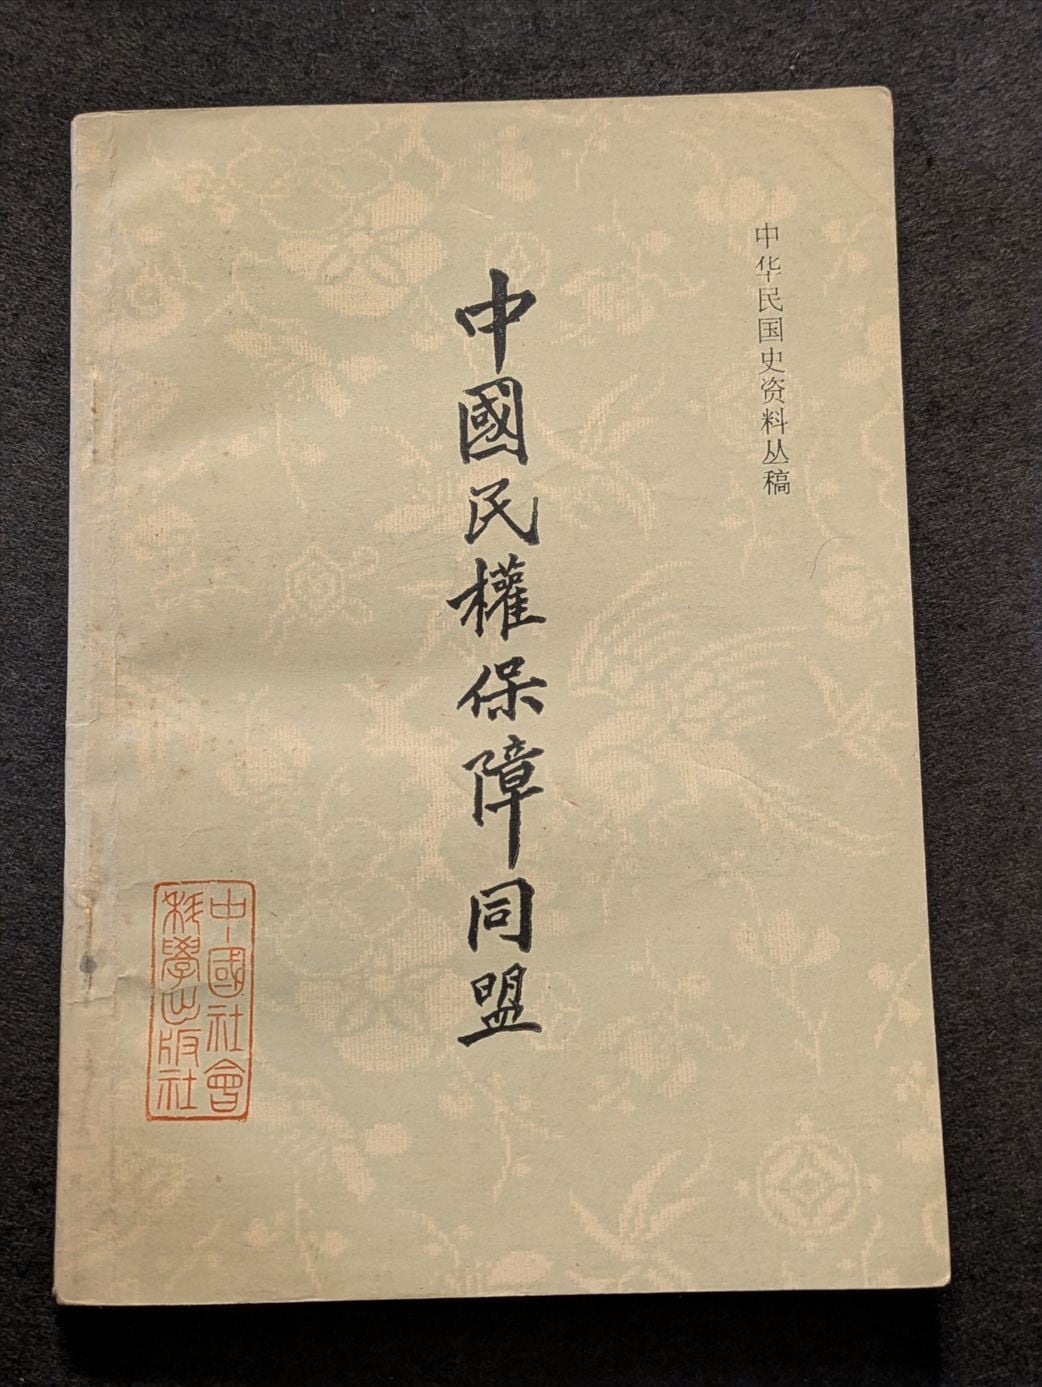 中华民国史资料丛稿
中國民權保障同盟
中國社會
科學出版社